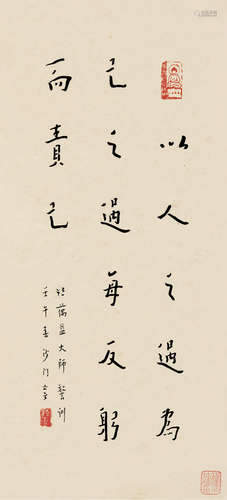 以人之過為
己之過每反躬
而責己
錄蕅益大師警訓
壬午春沙門